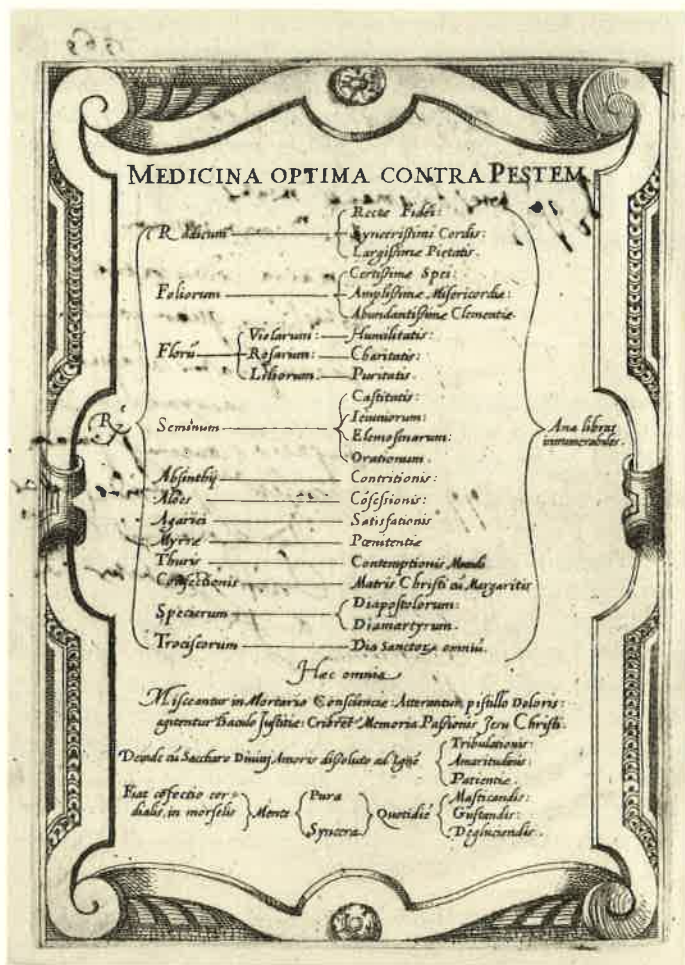 1569
MEDICINA OPTIMA CONTRA PESTEM
Radicum
Recte Fidei:
Syncerissimi Cordis:
Largissimæ Pietatis.
Foliorum
Certissimæ Spei:
Amplissimæ Misericordiæ:
Abundantissimæ Clementiæ.
Florū
Violarum: Humilitatis:
Rosarum: Charitatis:
Liliorum. Puritatis.
℞
Seminum
Castitatis:
Ieiuniorum:
Elemosinarum:
Orationum.
Ana libras
innumerabiles.
Absinthij Contritionis:
Aloes Cōfessionis:
Agarici Satisfationis
Myrræ Pœnitentiæ
Thuris Contemptionis Mundi
Confectionis Matris Christi cū Margaritis
Specierum
Diapostolorum:
Diamartyrum.
Trociscorum Dia Sanctoꝝ omniū.
Hæc omnia
Misceantur in Mortario Conscienciæ: Atterantur pistillo Doloris:
agitentur baculo Justitiæ: Cribret Memoria Passionis Jesu Christi.
Deinde cū Saccharo Divini Amoris dissoluto ad Ignē
Tribulationis:
Amaritudinis:
Patientiæ.
Fiat cōfectio cor=
dialis, in morselis
Mente
Pura
Syncera
Quotidiē
Masticandis:
Gustandis:
Degluciendis.